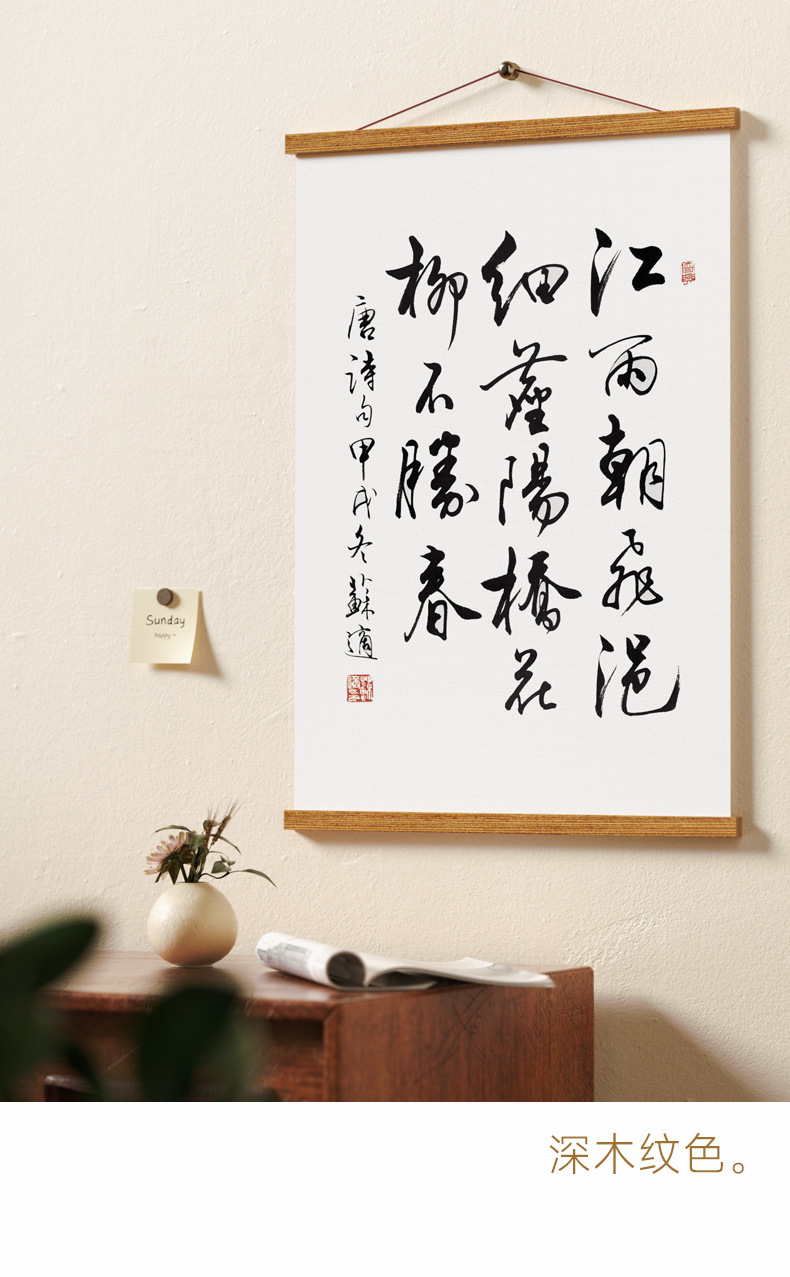 江雨朝飛浥
細塵陽橋花
柳不勝春
唐詩句甲戌冬蘇適
Sunday
happy~
深木纹色。